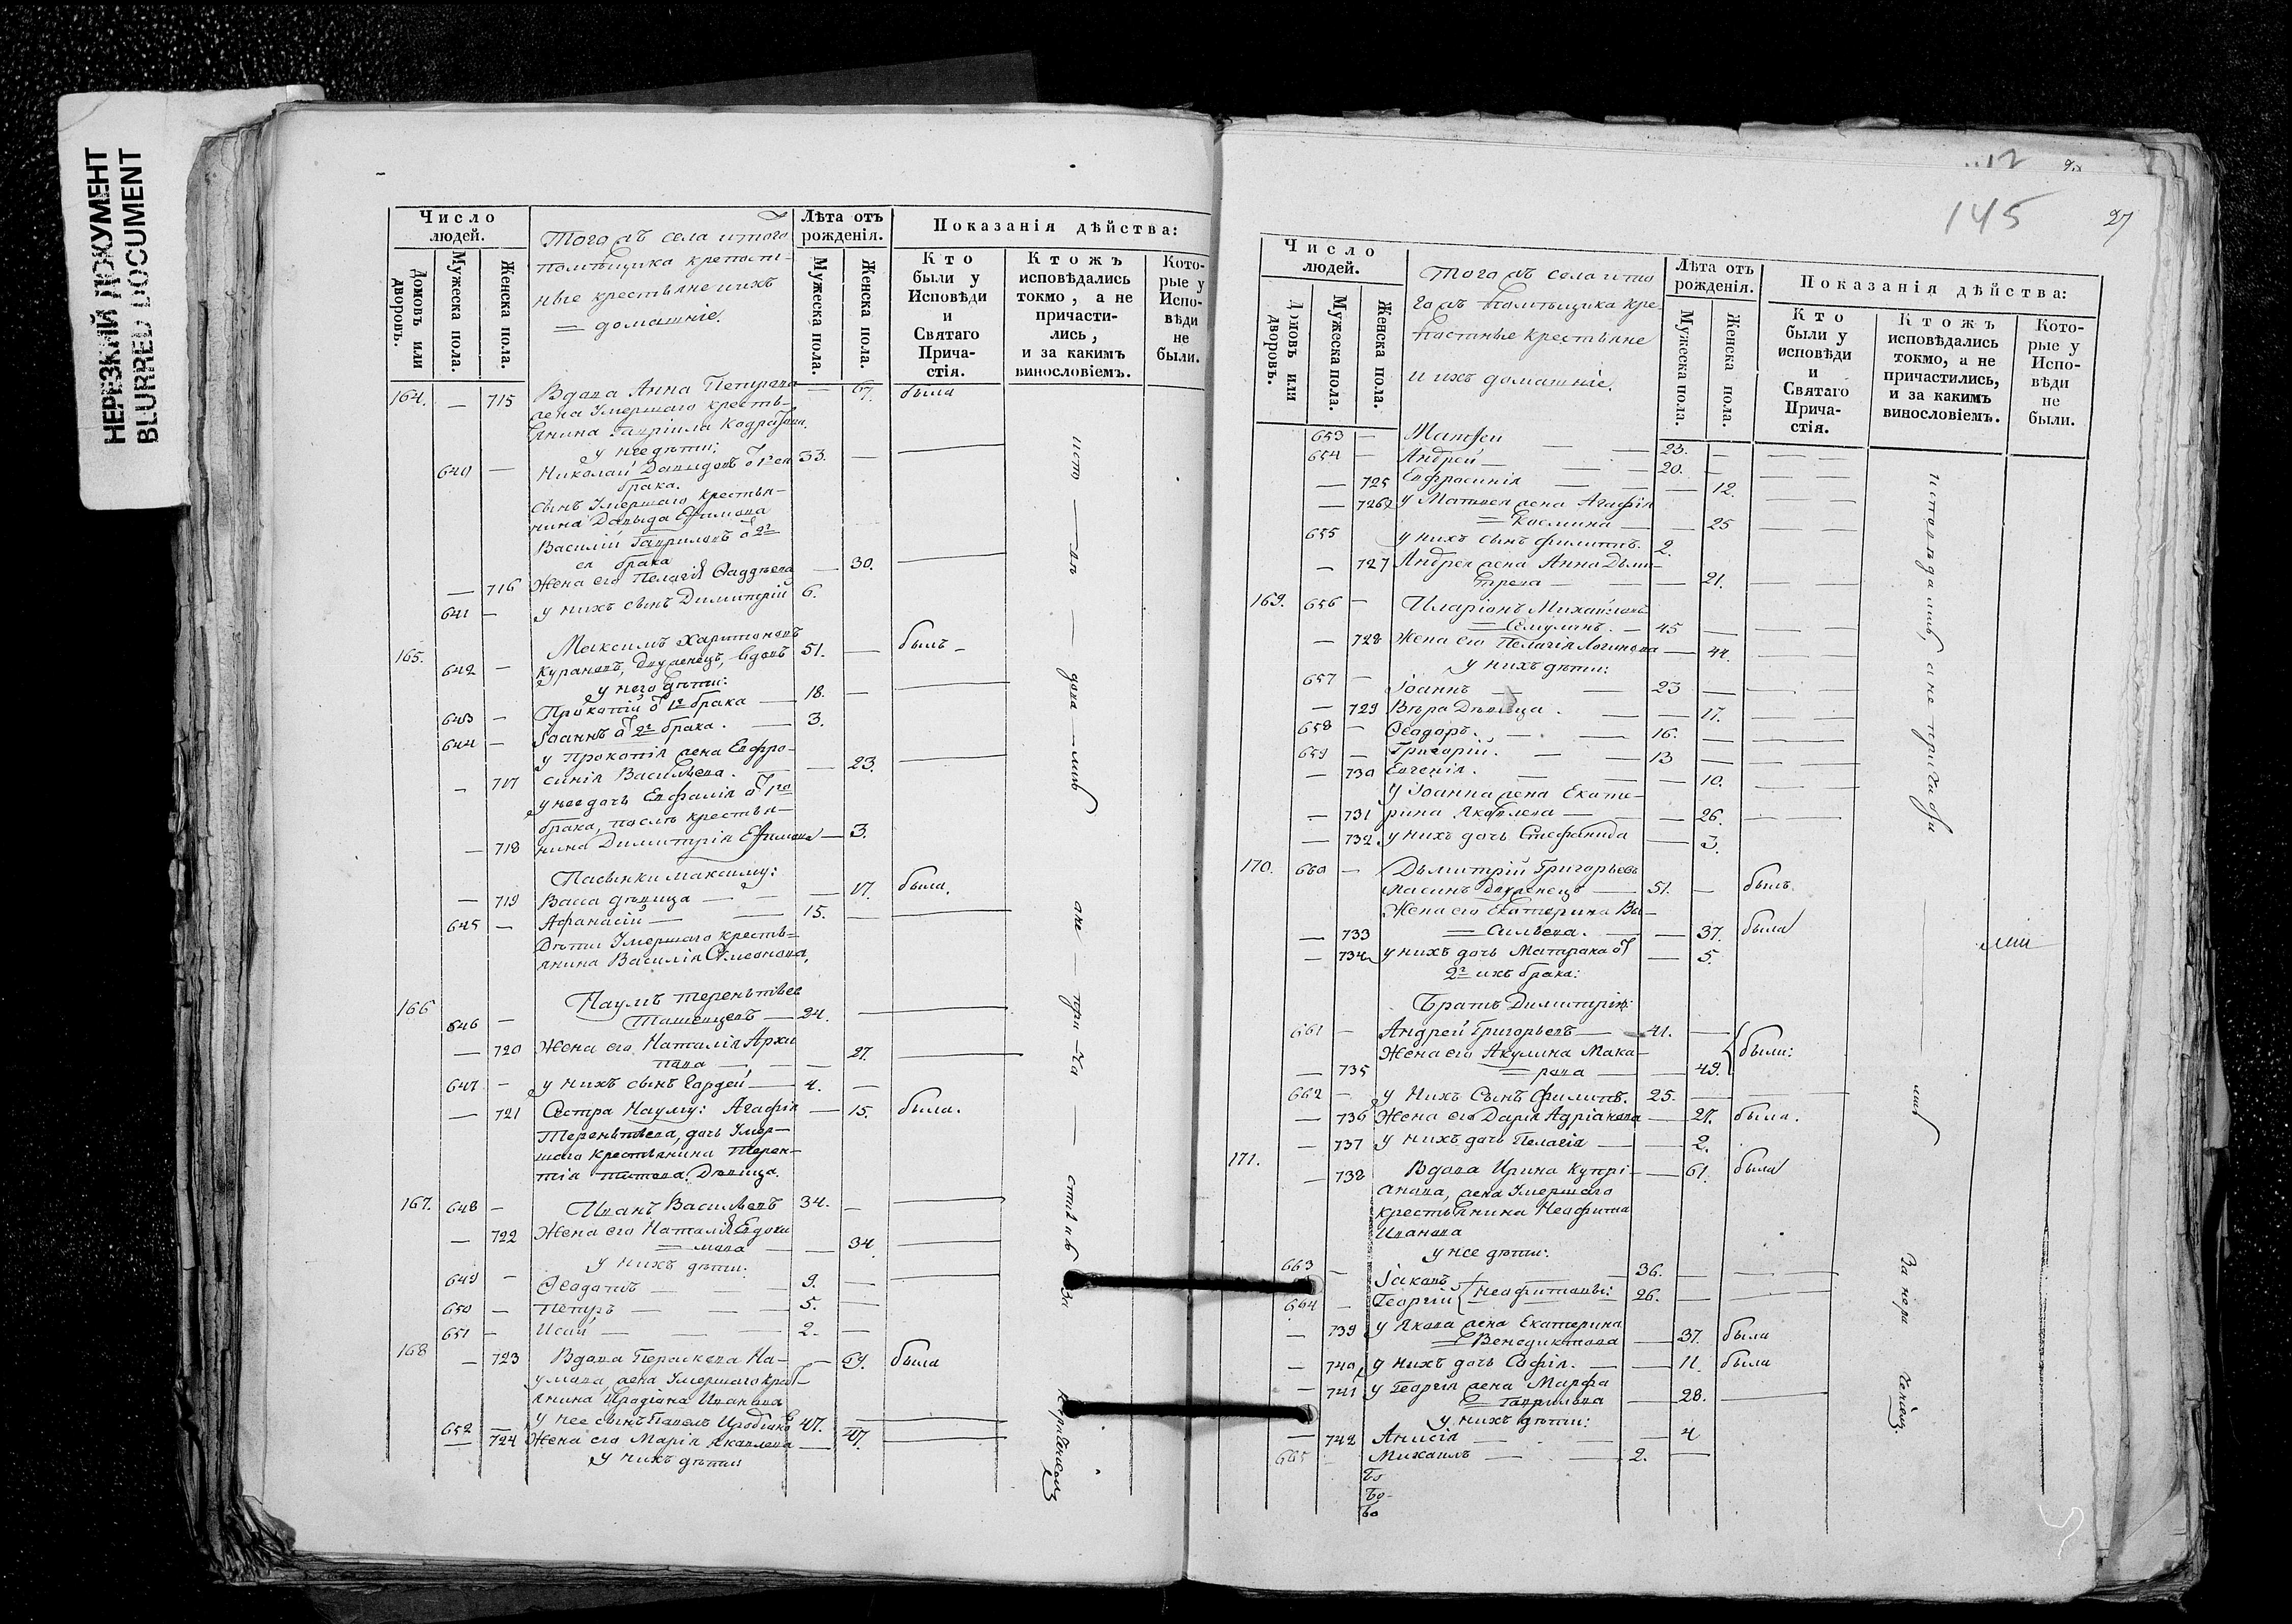 НЕРЕЗКИЙ ДОКУМЕНТ
BLURRED DOCUMENT
Число людей.
Домовъ или дворовъ.
Мужеска пола.
Женска пола.
Тогожъ села итого
помѣщика крепост-
ные крестьяне и ихъ
= домашніе.
Лѣта отъ рожденія.
Мужеска пола.
Женска пола.
Показанія дѣйства:
Кто были у Исповѣди и Святаго Прича-стія.
Ктожъ исповѣдались токмо, а не причасти-лись, и за какимъ винословіемъ.
Кото-рые у Испо-вѣди не были.
164. — 715 Вдова Анна Петрова — 67. была
жена Умершаго кресть-
янина Гавріила
у нее дѣти:
640 — Николай Давыдовъ 33. —
брака.
сынъ Умершаго крестья-
нина Давыда Ефимова
Василій Гавриловъ
ея брака
— 716 Жена его Пелагія Фаддѣева — 30.
641 — у нихъ сынъ Димитрій 6.
165. 642 — Максимъ Харитоновъ
Курановъ, Двуженецъ, вдовъ 51. — былъ
у него дѣти:
643 — Прокопій от 1го брака — 18. —
644 — Іоаннъ от 2го брака. — 3.
у Прокопія жена Евфро-
— 717 синія Васильева. — 23.
у нее дочь Евфалія от 1го
брака, послѣ крестья-
— 718 нина Димитрія Ефимова — 3.
Пасынки Максиму:
— 719 Васса дѣвица — 17. была.
645 — Афанасій — 15. —
Дѣти Умершаго кресть=
янина Василія Симеонова,
166 646 — Наумъ Терентіевъ
24.
— 720 Жена его Наталія Архи
пова — 27.
647 — у нихъ сынъ Гордей — 4. —
— 721 Сестра Науму: Агафія — 15. была.
Терентіева, дочь Умер-
шаго крестьянина Терен-
тія Титова. Дѣвица.
167. 648 — Иванъ Васильевъ 34. —
— 722 Жена его Наталія Евдоки
= мова — 34.
у нихъ дѣти:
649 — Ѳеодотъ — 9. —
650 — Петръ — 5. —
651 — Исаи — 2. —
168 — 723 Вдова Параскева На-
— 69. была
умова, жена Умершаго крест-
янина Иродіона Иванова
652 — у нее сынъ Павелъ Иродіоновъ 47.
— 724 Жена его Марія Яковлева — 47.
у нихъ дѣти
испо — вѣ — дова — лись а не — при — ча — стились за
145
27
Число людей.
Домовъ или дворовъ.
Мужеска пола.
Женска пола.
Тогожъ села ито
гожъ помѣщика кре-
постные крестьяне
и ихъ домашніе.
Лѣта отъ рожденія.
Мужеска пола.
Женска пола.
Показанія дѣйства:
Кто были у исповѣди и Святаго Прича-стія.
Ктожъ исповѣдались токмо, а не причастились, и за какимъ винословіемъ.
Кото-рые у Испо-вѣди не были.
653 — Матѳей — 23. —
654 — Андрей — 20. —
— 725 Евфросинія — 12.
— 726 у Матвея жена Агафія
= Космина — 25
655 у нихъ сынъ Филиппъ. 2.
— 727 Андрея жена Анна Дьми-
трева — 21.
169. 656 — Иларіонъ Михайловъ
= Семулинъ. — 45 —
— 728 Жена его Пелагія Логинова — 44.
у нихъ дѣти:
657 — Іоаннъ — 23 —
— 729 Вѣра Дѣвица. — 17.
658 — Ѳеодоръ. — 16. —
659 — Григорій. — 13 —
— 730 Евгенія. — 10.
у Іоанна жена Екате-
— 731 рина Яковлева — 26.
— 732 у нихъ дочь Стефанида — 3.
170. 660 — Дьмитрій Григорьевъ
Двуженецъ — 51. — былъ.
Жена его Екатерина Ва-
— 733 = сильева. — 37. была
— 734 у нихъ дочь Матрона от — 5.
2го ихъ брака:
Братъ Димитрію:
661 — Андрей Григорьевъ — 41. —
Жена его Акулина Мака-
— 735 = рова — 49. были:
662 — у Нихъ Сынъ Филиппъ. 25. —
— 736 Жена его Дарія Адріанова — 27. была.
— 737 у нихъ дочь Пелагія — 2.
171. — 738 Вдова Ирина Купрі- — 61. была
анова, жена Умершаго
крестьянина Неофита
Иванова
у нее дѣти:
663 — Іаковъ — 36. —
664 — Георгій Неофитовы: 26. —
— 739 у Якова жена Екатерина
= Венедиктова — 37. была
— 740 у нихъ дочь Софія. — 11. была
— 741 у Георгія жена Марфа
= Гаврилова — 28.
у нихъ дѣти:
— 742 Анисія — 4
665 Михаилъ — 2. —
исповѣдались, а не причасти — лись за нера